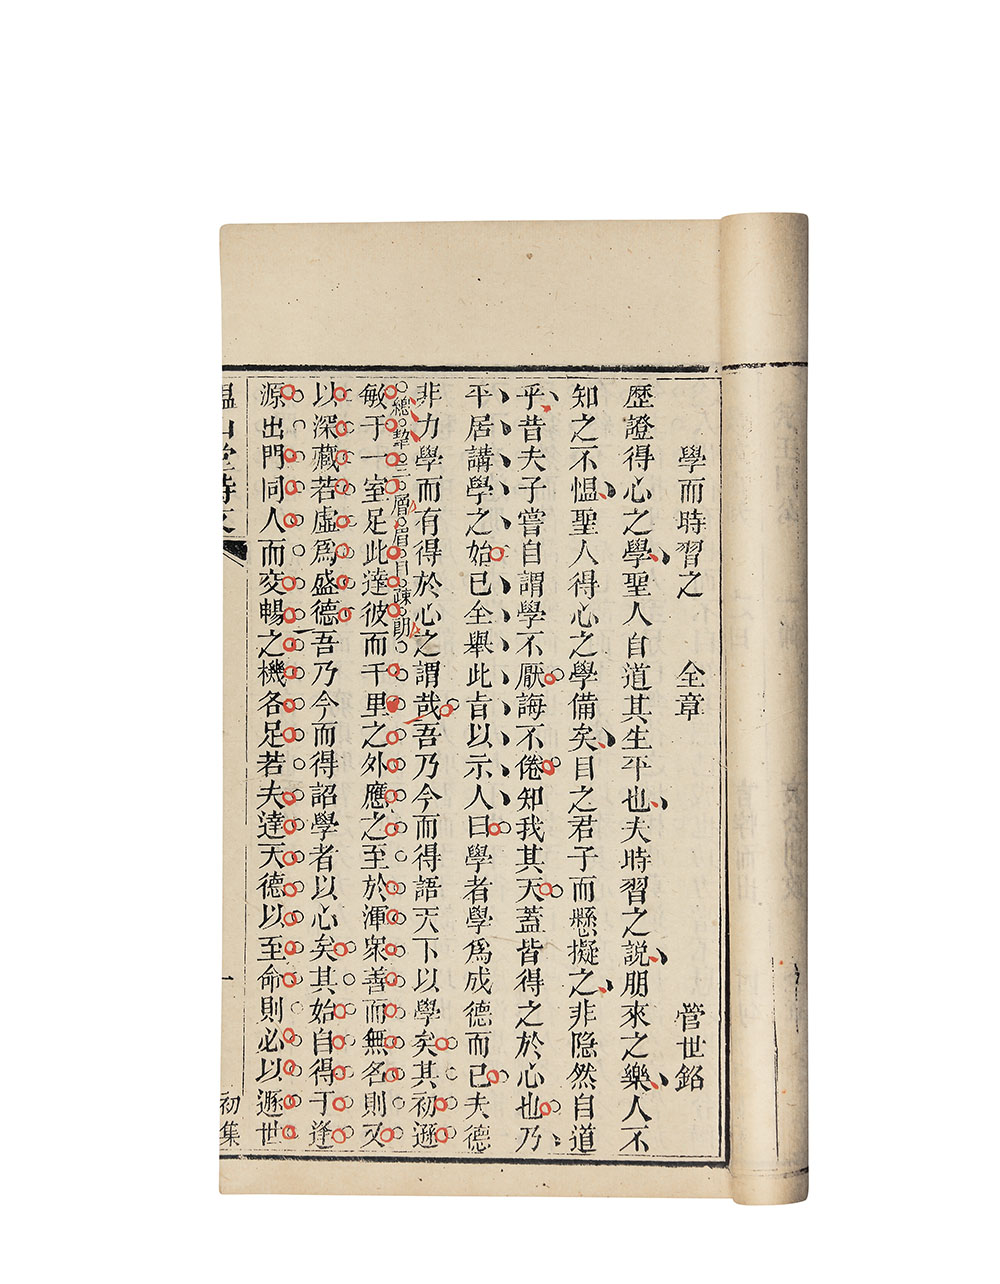 學而時習之 全章 管世銘
歷證得心之學聖人自道其生平也夫時習之說朋來之樂人不
知之不愠聖人得心之學備矣目之君子而懸擬之非隱然自道
乎昔夫子嘗自謂學不厭誨不倦知我其天蓋皆得之於心也乃
平居講學之始已全舉此旨以示人曰學者學爲成德而已夫德
非力學而有得於心之謂哉吾乃今而得語天下以學矣其初遜
總挈三層眉目疎朗
敏于一室足此達彼而千里之外應之至於渾衆善而無名則又
以深藏若虛爲盛德吾乃今而得詔學者以心矣其始自得于逢
源出門同人而交暢之機各足若夫達天德以至命則必以遯世
韞山堂時文 一 初集